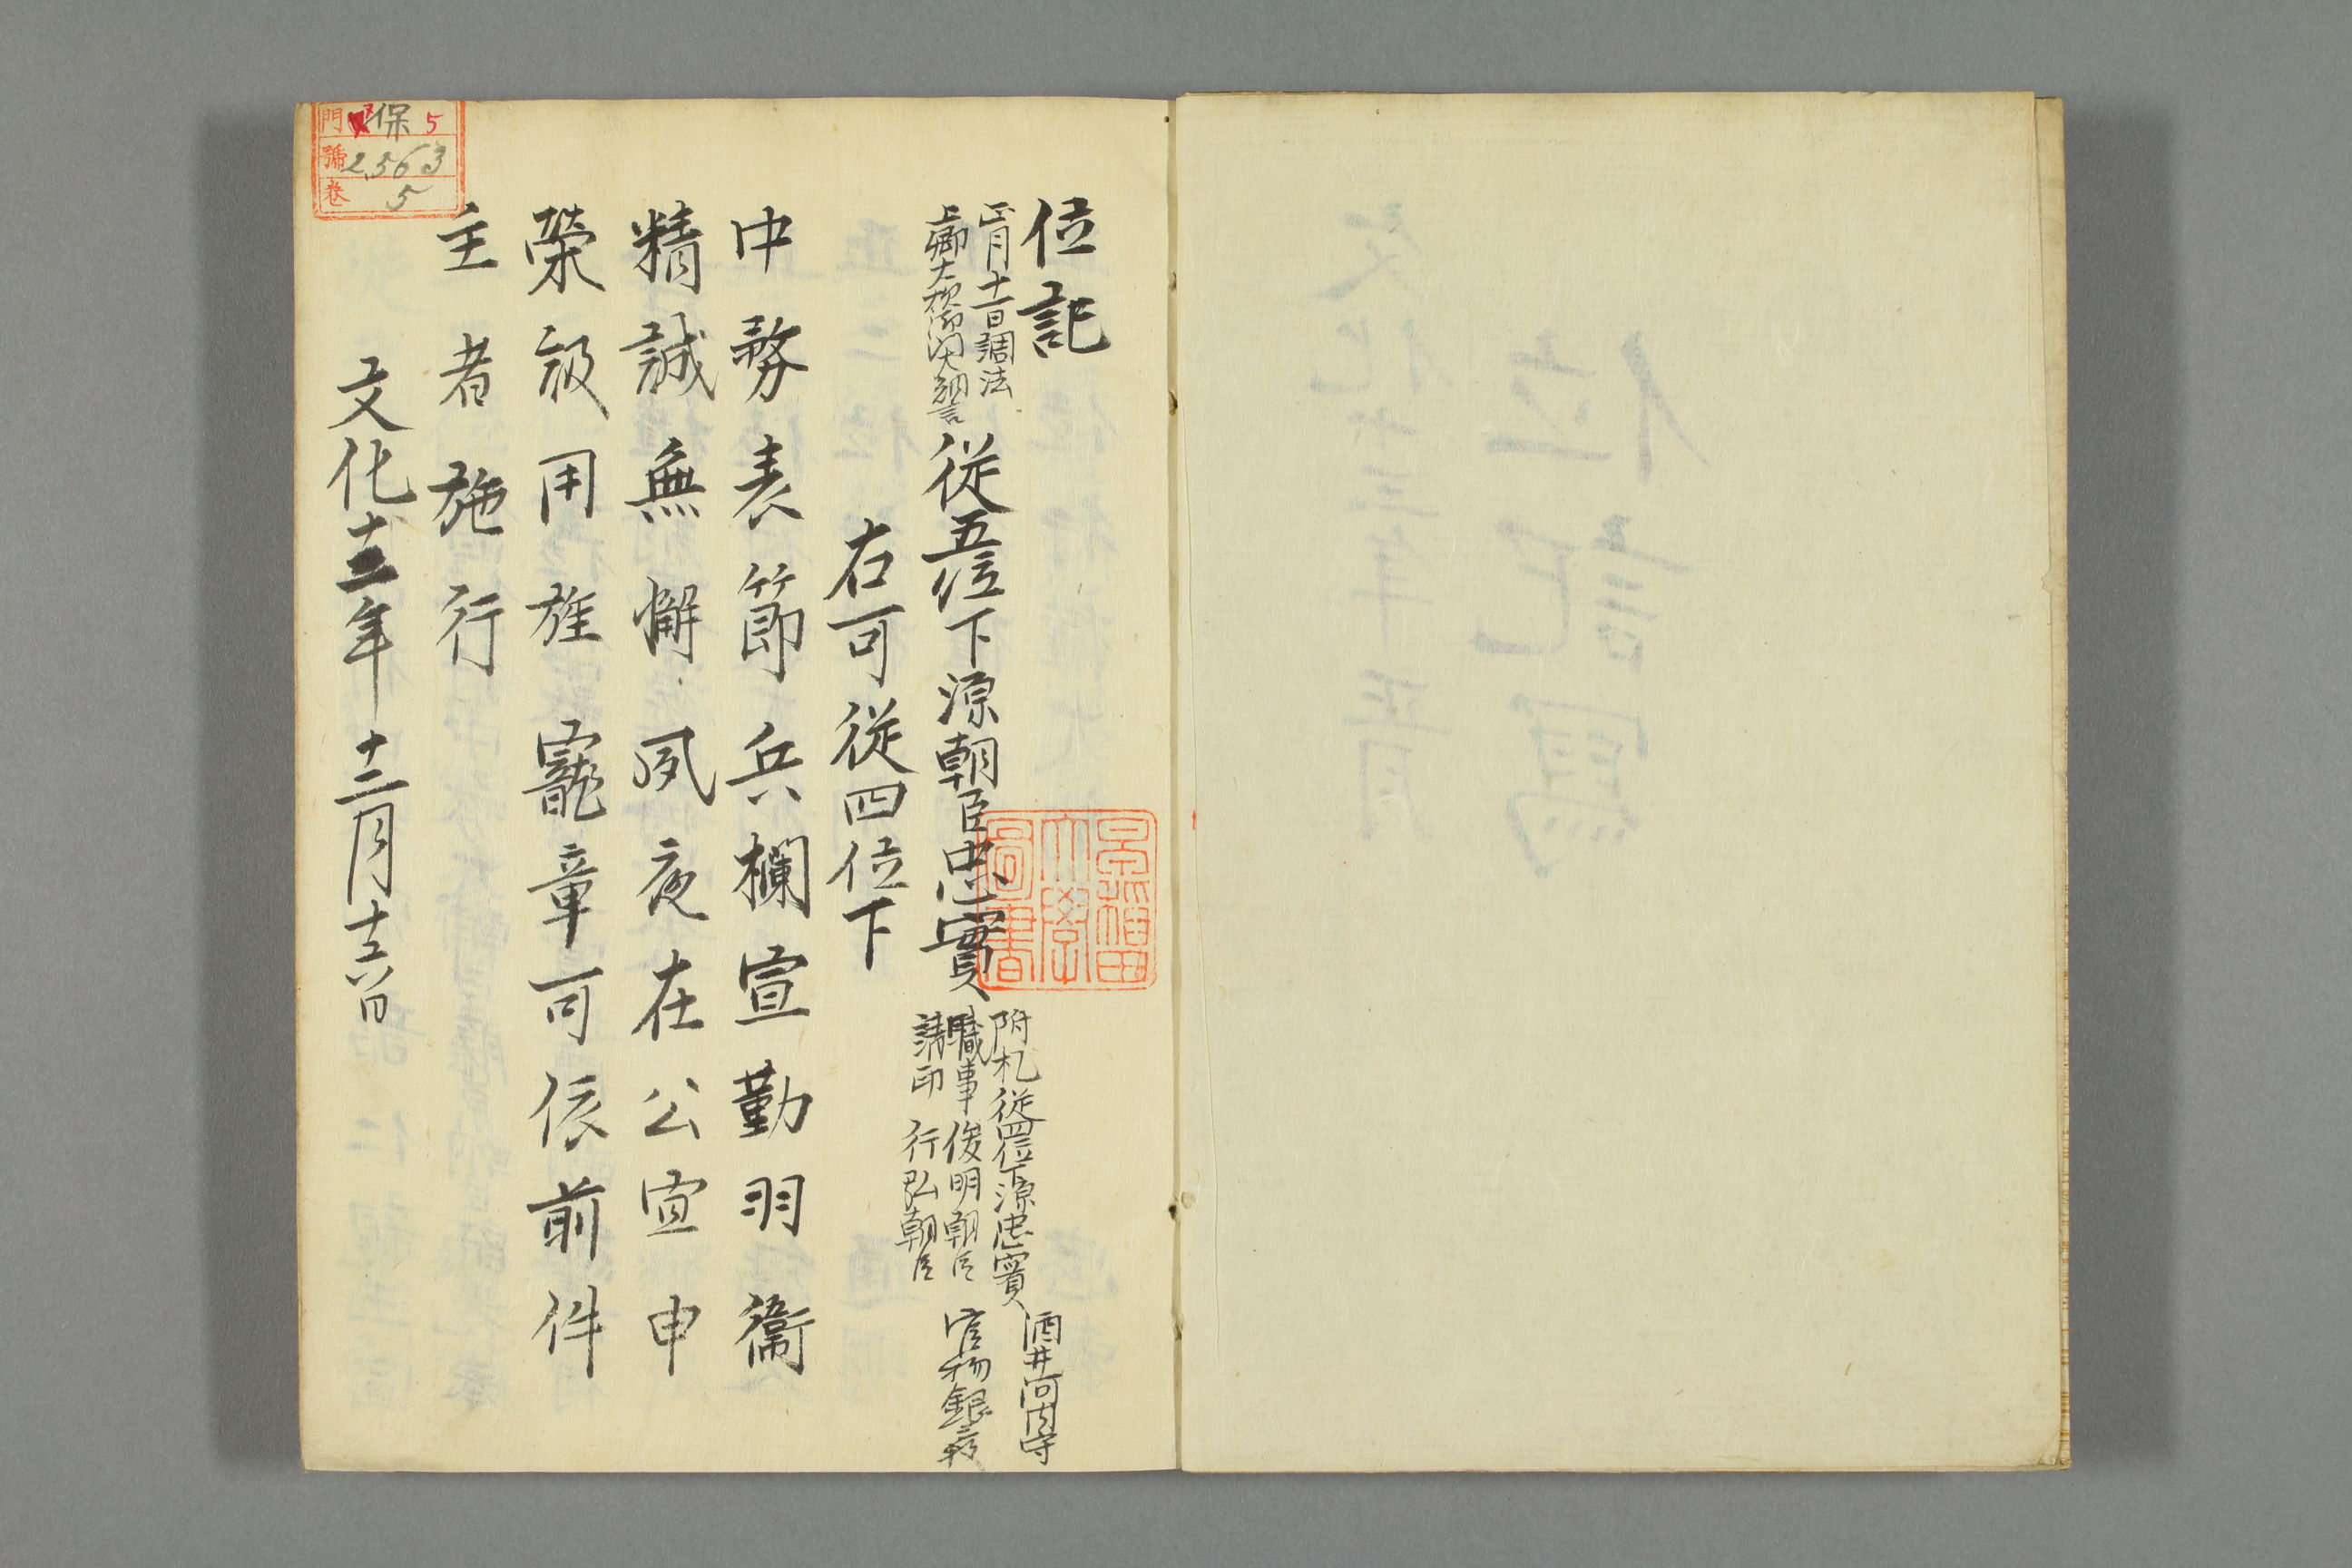 位記
正月十一日調法
上卿
大納言
従五位下源朝臣忠實
附札従四位下源忠實
酒井河内守
職事 俊明朝臣
請印 行弘朝臣
官物銀
右可従四位下
中務表節兵欄宣勤羽衞
精誠無懈夙夜在公宜申
榮級用旌寵章可依前件
主者施行
文化十三年十二月十六日
門 保 5
號 2,563
卷 5
早稲田大學圖書